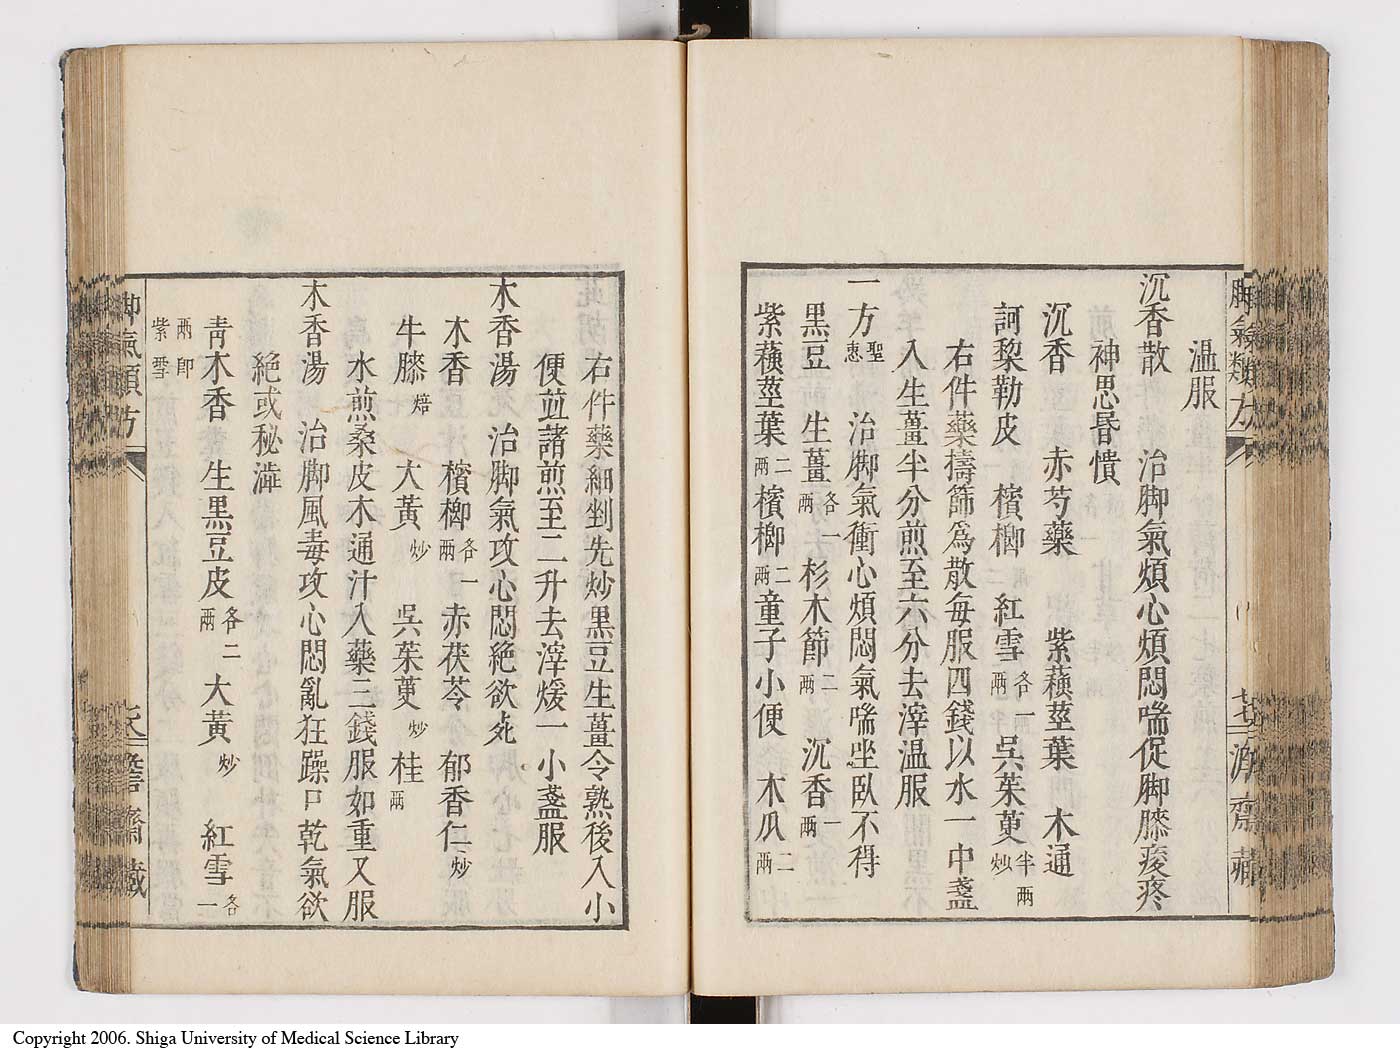 脚氣類方
濟齋藏
温服
沉香散　治脚氣煩心煩悶喘促脚膝痠疼
神思昬憒
沉香　赤芍藥　紫蘓莖葉　木通
訶黎勒皮　檳榔　紅雪各一兩　呉茱萸半兩炒
右件藥擣篩爲散每服四錢以水一中盞
入生薑半分煎至六分去滓温服
一方聖惠　治脚氣衝心煩悶氣喘坐臥不得
黒豆　生薑各一兩　杉木節二兩　沉香一兩
紫蘓莖葉二兩　檳榔二兩　童子小便　木瓜二兩
右件藥細剉先炒黒豆生薑令熟後入小
便並諸煎至二升去滓煖一小盞服
木香湯　治脚氣攻心悶絶欲死
木香　檳榔各一兩　赤茯苓　郁香仁炒
牛膝焙　大黃炒　呉茱萸炒　桂兩
水煎桑皮木通汁入藥三錢服如重又服
木香湯　治脚風毒攻心悶亂狂躁口乾氣欲
絶或秘澁
靑木香　生黒豆皮各二兩　大黃炒　紅雪各一
兩即紫雪
脚氣類方
齋藏
Copyright 2006. Shiga University of Medical Science Library